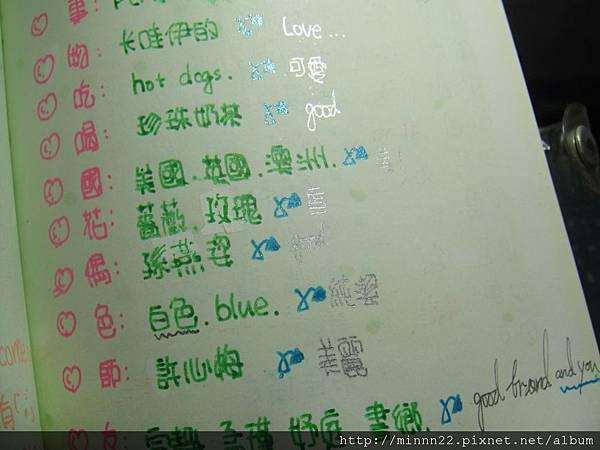 事:
物: 卡哇伊的 Love...
吃: hot dogs. 可愛
喝: 珍珠奶茶 good
國: 美國.英國.澳洲.
花: 薔薇.玫瑰
偶: 孫燕姿 good
色: 白色.blue. 純潔
師: 許心梅 美麗
友: 妤庭 書鄉. good friend and you
http://minnn22.pixnet.net/album